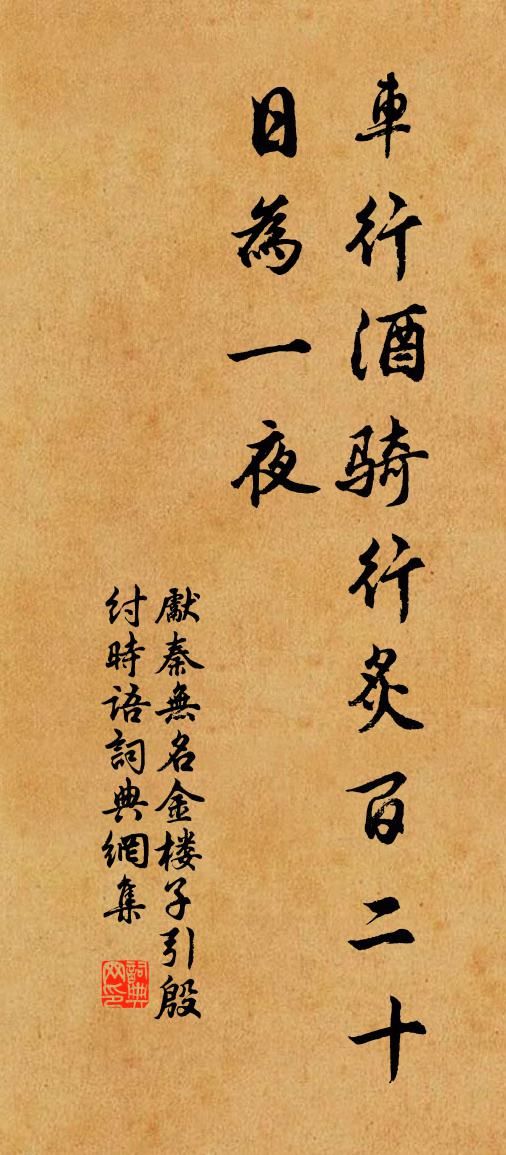 車行酒騎行炙百二十
日為一夜
獻秦無名金楼子引殷
紂時语詞典網集
詞典
网印